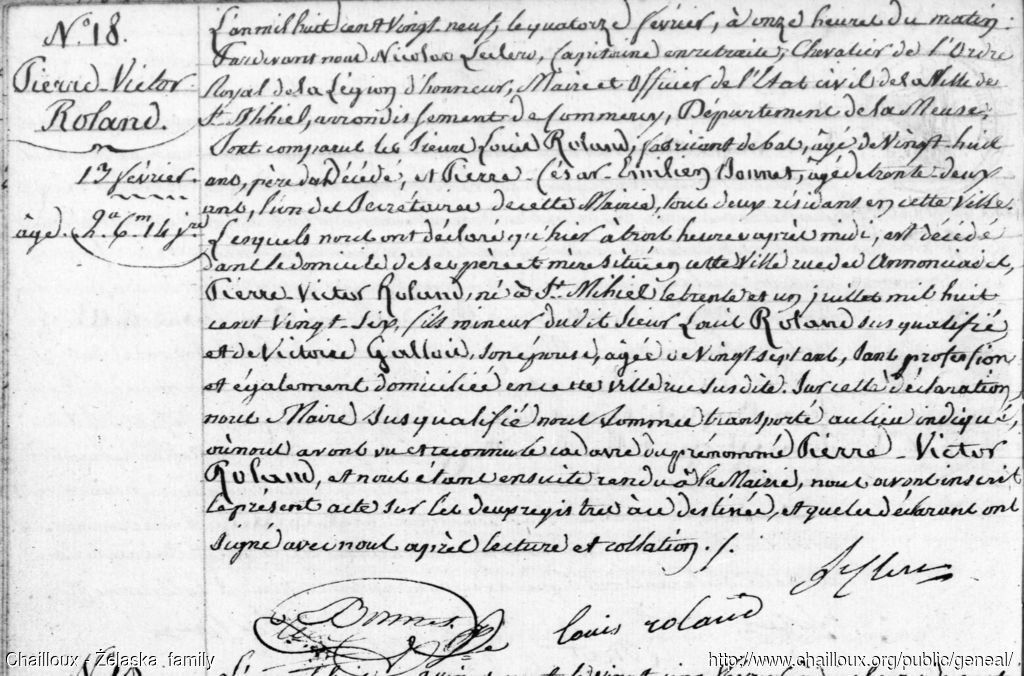 N.° 18.
Pierre-Victor
Roland.
13 février
âgé. 2.a 6.m 14 jrs
L'an mil huit cent vingt neuf, le quatorze février, à onze heures du matin:
Pardevant nous Nicolas Leclerc, Capitaine en retraite, Chevalier de l'Ordre
Royal de la Légion d'honneur, Maire et Officier de l'Etat civil de la Ville de
St. Mihiel, arrondissement de Commercy, Département de la Meuse,
Sont comparus les Sieurs Louis Roland, fabricant de bas, âgé de Vingt-huit
ans, père du Décédé, et Pierre-César-Emilien Bonnet, âgé de trente-deux
ans, l'un des Secretaires de cette Mairie, tous deux résidans en cette Ville,
Lesquels nous ont déclaré qu'hier à trois heures après midi, est décédé
dans le domicile de ses père et mère situé en cette Ville rue des Annonciades,
Pierre-Victor Roland, né à St. Mihiel le trente et un juillet mil huit
cent Vingt-Six, fils mineur du dit Sieur Louis Roland susqualifié
et de Victoire Gallois, son épouse, âgée de Vingt sept ans, Sans profession
et également domiciliée en cette ville rue susdite. Sur cette déclaration,
nous Maire susqualifié nous Sommes transporté au lieu indiqué,
où nous avons vu et reconnu le cadavre du prénommé Pierre-Victor
Roland, et nous étant ensuite rendu à la Mairie, nous avons inscrit
le présent acte sur les deux registres à ce destinés, et que les déclarans ont
signé avec nous après lecture et collation. /.
Leclerc
Bonnet
louis roland
Chailloux - Żelaska family
http://www.chailloux.org/public/geneal/